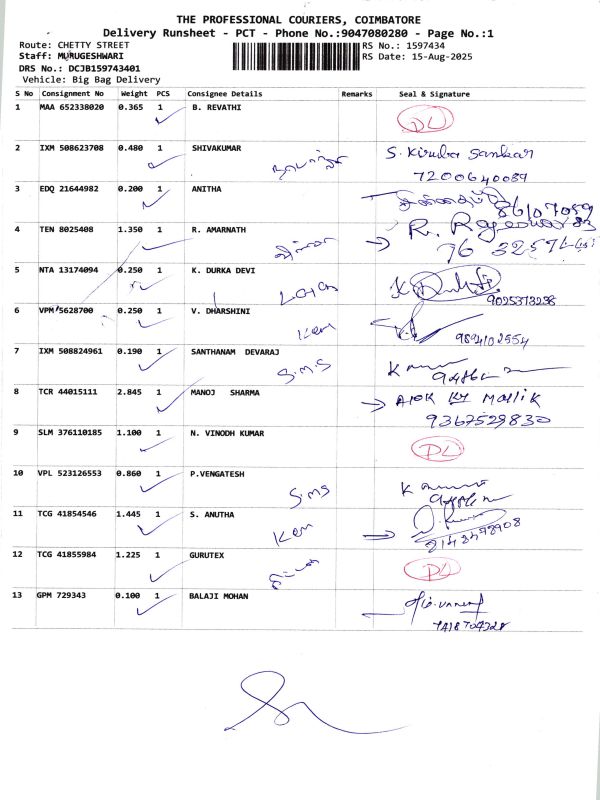 THE PROFESSIONAL COURIERS, COIMBATORE
Delivery Runsheet - PCT - Phone No.:9047080280 - Page No.:1
Route: CHETTY STREET
RS No.: 1597434
Staff: MURUGESHWARI
RS Date: 15-Aug-2025
DRS No.: DCJB159743401
Vehicle: Big Bag Delivery
S No Consignment No Weight PCS Consignee Details Remarks Seal & Signature
1 MAA 652338020 0.365 1 B. REVATHI DL
2 IXM 508623708 0.480 1 SHIVAKUMAR S. Kiruba Sankar
7200640089
3 EDQ 21644982 0.200 1 ANITHA
4 TEN 8025408 1.350 1 R. AMARNATH R. Rajeswari
5 NTA 13174094 0.250 1 K. DURKA DEVI
9025373298
6 VPM 5628700 0.250 1 V. DHARSHINI Ken
9894102554
7 IXM 508824961 0.190 1 SANTHANAM DEVARAJ S.M.S
8 TCR 44015111 2.845 1 MANOJ SHARMA
9367529830
9 SLM 376110185 1.100 1 N. VINODH KUMAR DL
10 VPL 523126553 0.860 1 P.VENGATESH S.M.S
11 TCG 41854546 1.445 1 S. ANUTHA Ken
12 TCG 41855984 1.225 1 GURUTEX DL
13 GPM 729343 0.100 1 BALAJI MOHAN